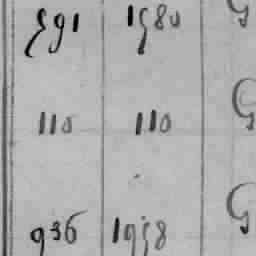 891 1980 G
110 110 G
936 1958 G